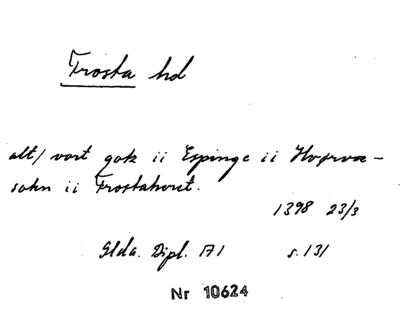 Frosta hd
alt/ vort gotz ii Espinge ii Hvørvæ-
sokn ii Frostaheret.
1398 23/3
Glda. Dipl. A1 s. 131
Nr 10624